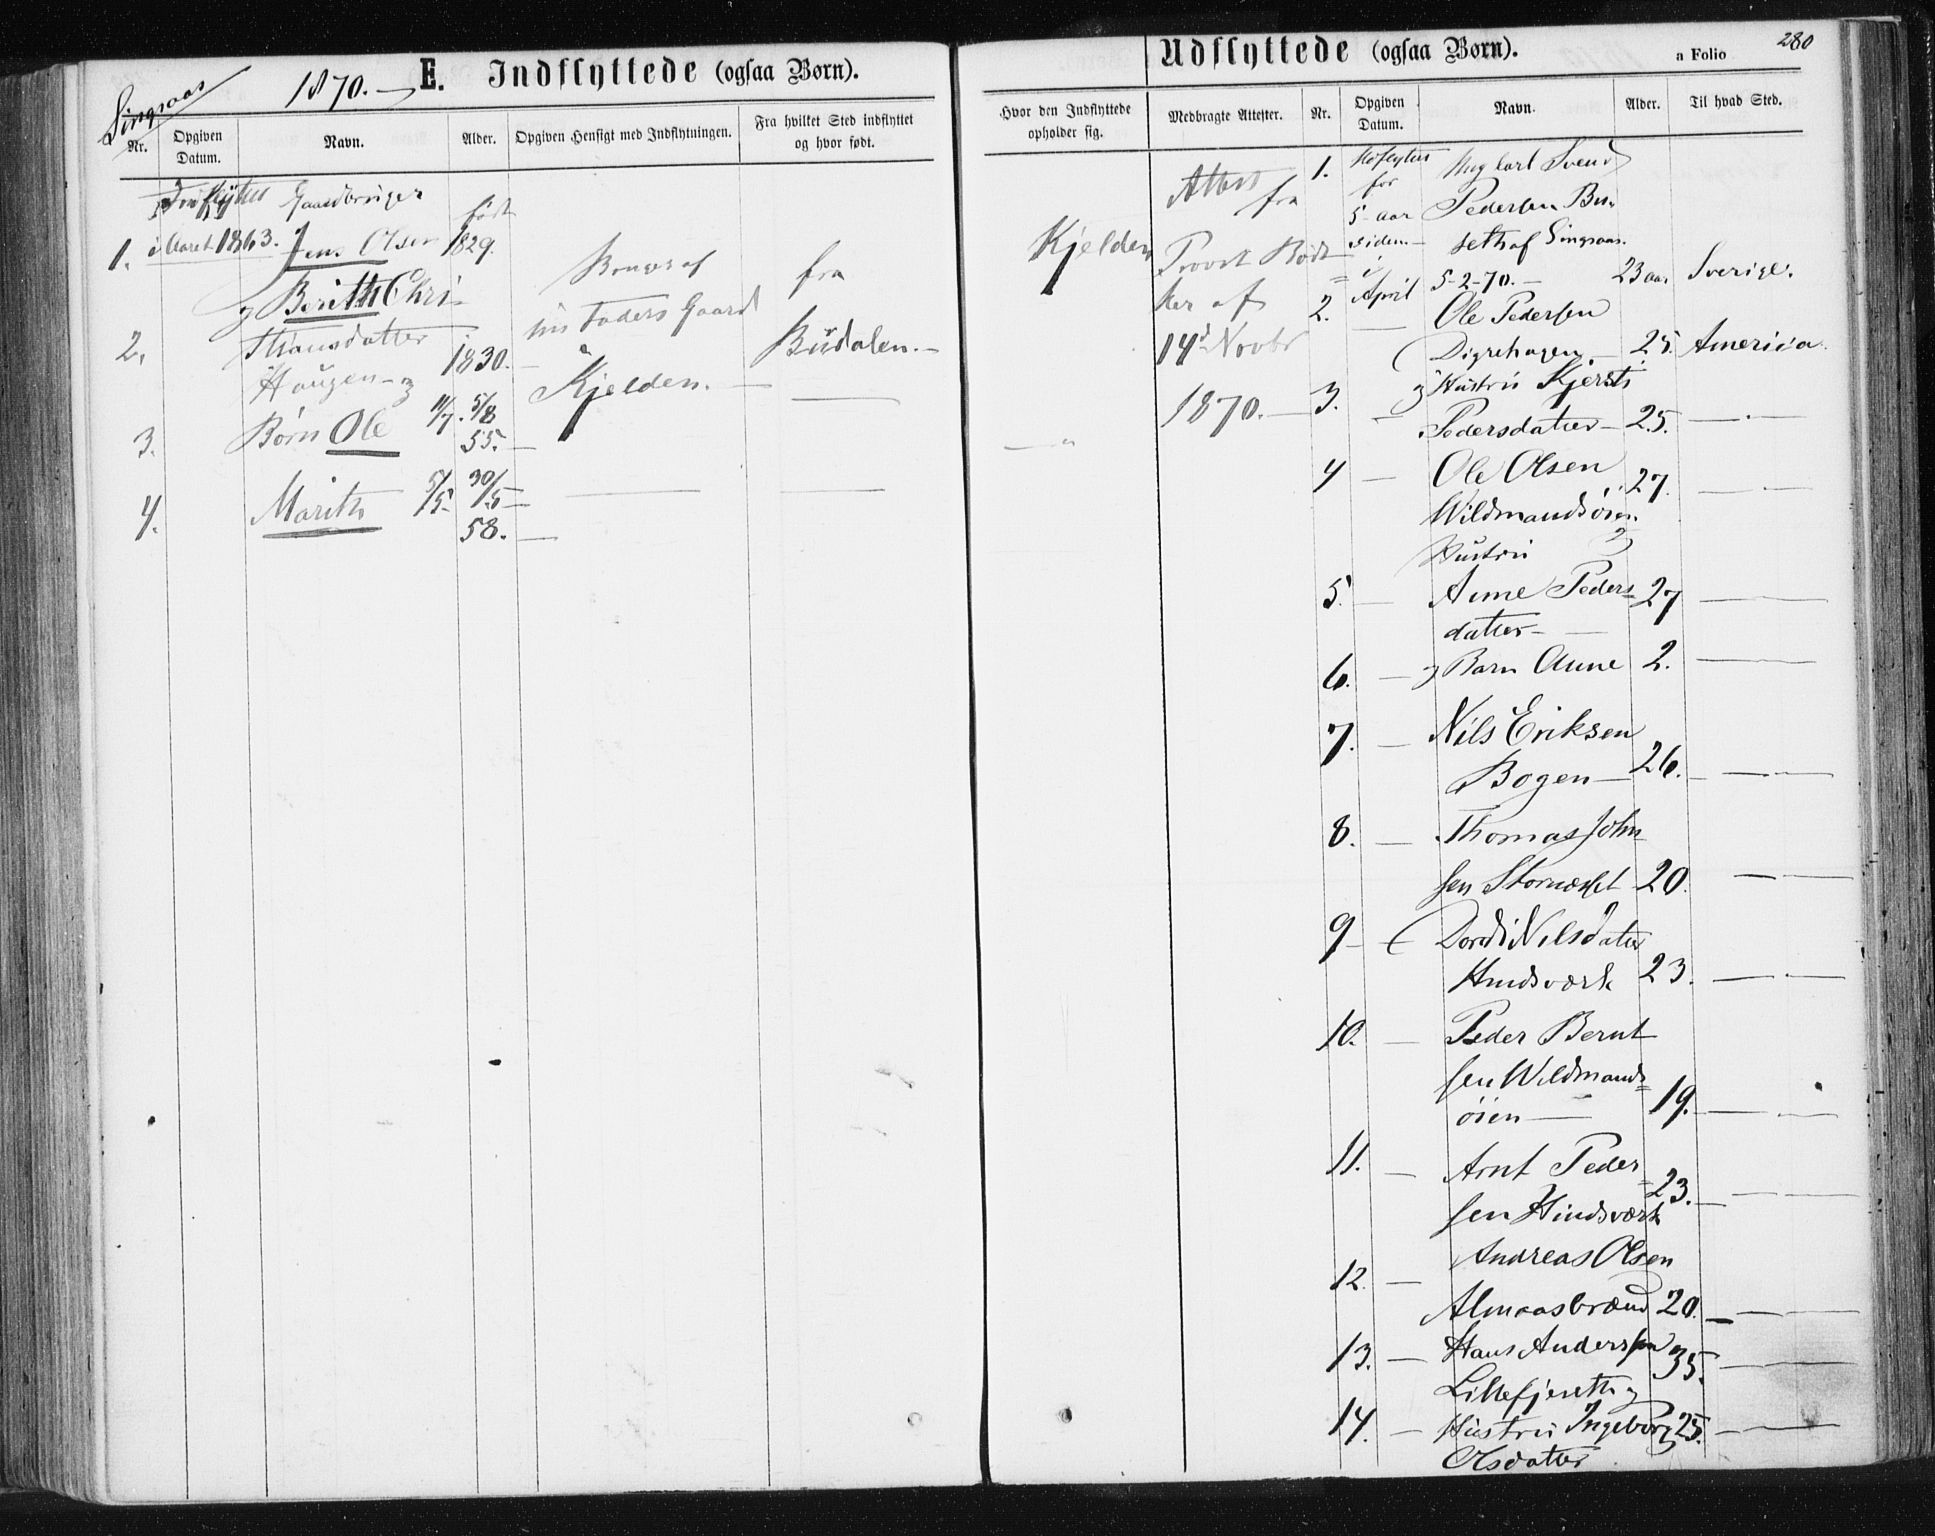 Singsaas
1870. — E. Indflyttede (ogsaa Børn).
Nr.
Opgiven Datum.
Navn.
Alder.
Opgiven Hensigt med Indflytningen.
Fra hvilket Sted indflyttet og hvor født.
Indflyttet Gaardbruger
født
1. i Aaret 1863. Jens Olsen 1829.
Bruger af
fra
og Berith Chri-
sin Faders Gaard
2. stiansdatter 1830. —
Budalen. —
Haugen — og
Kjelden. —
3. Børn Ole 11/7. 5/8
55. —
4. Marith 5/5 30/5 —
58. —
Udflyttede (ogsaa Børn).
a Folio 280
Hvor den Indflyttede opholder sig.
Medbragte Attester.
Nr.
Opgiven Datum.
Navn.
Alder.
Til hvad Sted.
Attest
fra
Kjelden
Provst Bødt
ker af
14d Novbr
1870. —
1. for
5 aar
siden —
Ung karl Svend
Pedersen Bu-
seth af Singsaas.
5-2-70. — 23 aar Sverige.
2. i April
Ole Pedersen
Digrehagen. — 25. America.
3. — og Hustru Kjersti
Pedersdatter — 25. — . —
4 — Ole Olsen 27. — . —
Wildmandsøien.
og
Hustru
5. — Anne Peders- 27 — . —
datter —
6. — og Barn Anne 2. — . —
7. — Nils Eriksen
Bogen — 26. — . —
8. — Thomas John
sen Storneset 20. — . —
9 — Dordi Nilsdatter
Hindsværk 23. — . —
10. — Peder Bernt
sen Wildmands=
øien — 19. — . —
11. — Arnt Peder
sen Hindsværk 23. — . —
12. — Andreas Olsen
Almaasbrænd 20. — . —
13. — Hans Anderssen 35. — . —
Lillefjereth og
14. — Hustru Ingeborg 25. — . —
Olsdatter